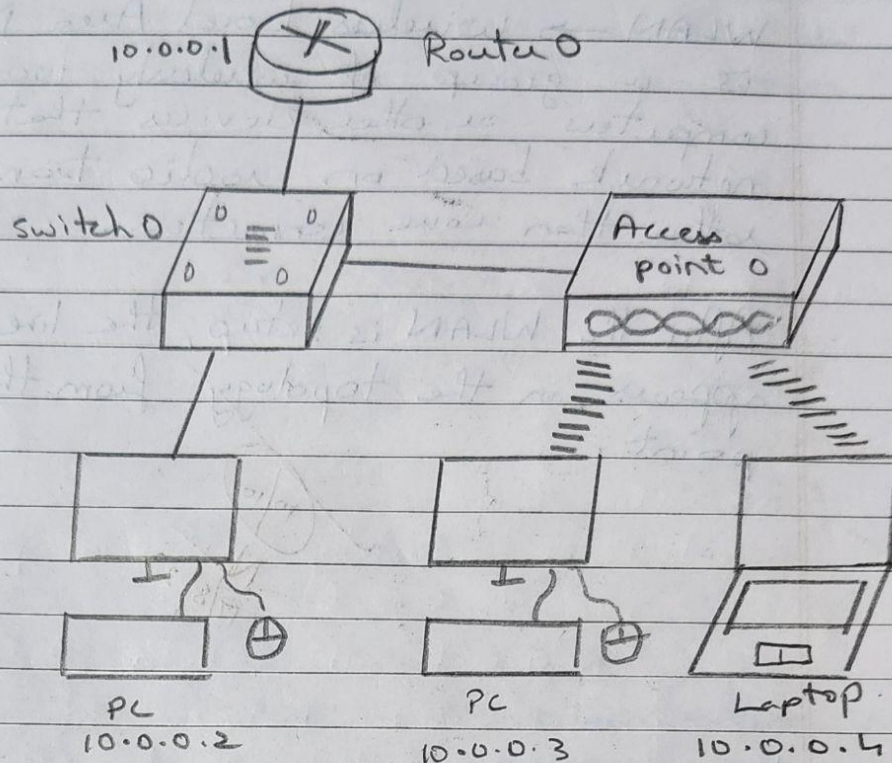 10.0.0.1 Router 0
switch 0
Access
point 0
PC
10.0.0.2
PC
10.0.0.3
Laptop.
10.0.0.4